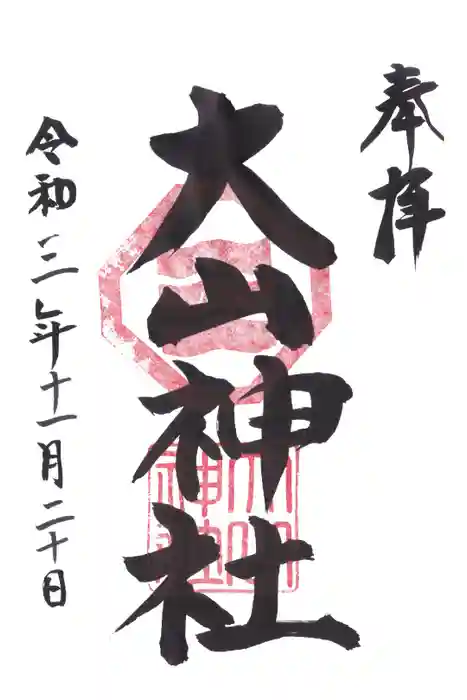 奉拝
大山神社
令和三年十一月二十日
大山
神社